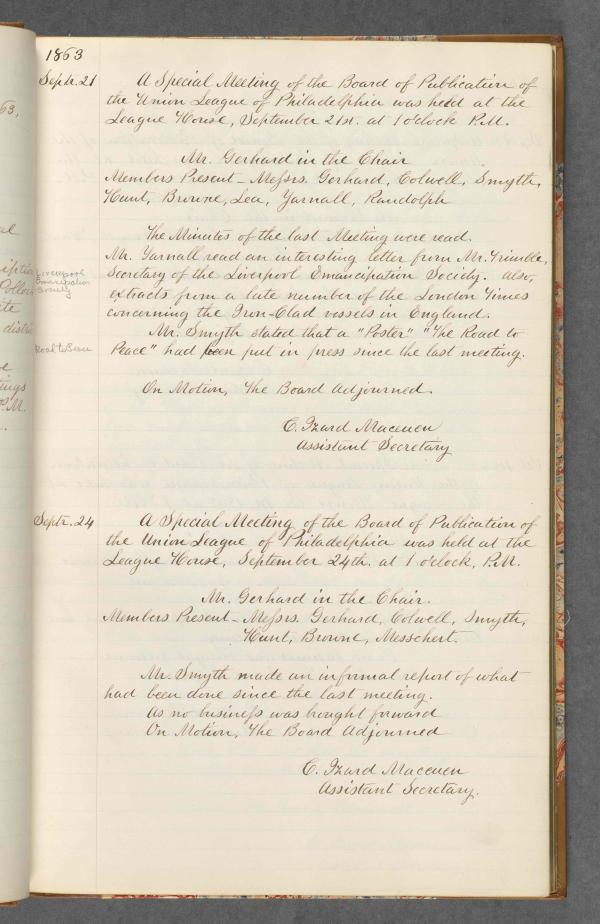 1863
Septr. 21
A Special Meeting of the Board of Publication of
the Union League of Philadelphia was held at the
League House, September 21st. at 1 o'clock P.M.
Mr. Gerhard in the Chair
Members Present - Messrs. Gerhard, Colwell, Smyth,
Hunt, Browne, Lea, Yarnall, Randolph
The Minutes of the last Meeting were read.
Mr. Yarnall read an interesting letter from Mr. Trimble,
Liverpool
Emancipation
Society
Secretary of the Liverpool Emancipation Society. Also,
extracts from a late number of the London Times
concerning the Iron-Clad vessels in England.
Mr. Smyth stated that a "Poster" "The Road to
Road to Peace
Peace" had been put in press since the last meeting.
On Motion, The Board Adjourned.
C. Izard Maceuen
Assistant Secretary
Septr. 24
A Special Meeting of the Board of Publication of
the Union League of Philadelphia was held at the
League House, September 24th. at 1 o'clock, P.M.
Mr. Gerhard in the Chair.
Members Present - Messrs. Gerhard, Colwell, Smyth,
Hunt, Browne, Messchert.
Mr. Smyth made an informal report of what
had been done since the last meeting.
As no business was brought forward
On Motion, The Board Adjourned
C. Izard Maceuen
Assistant Secretary.